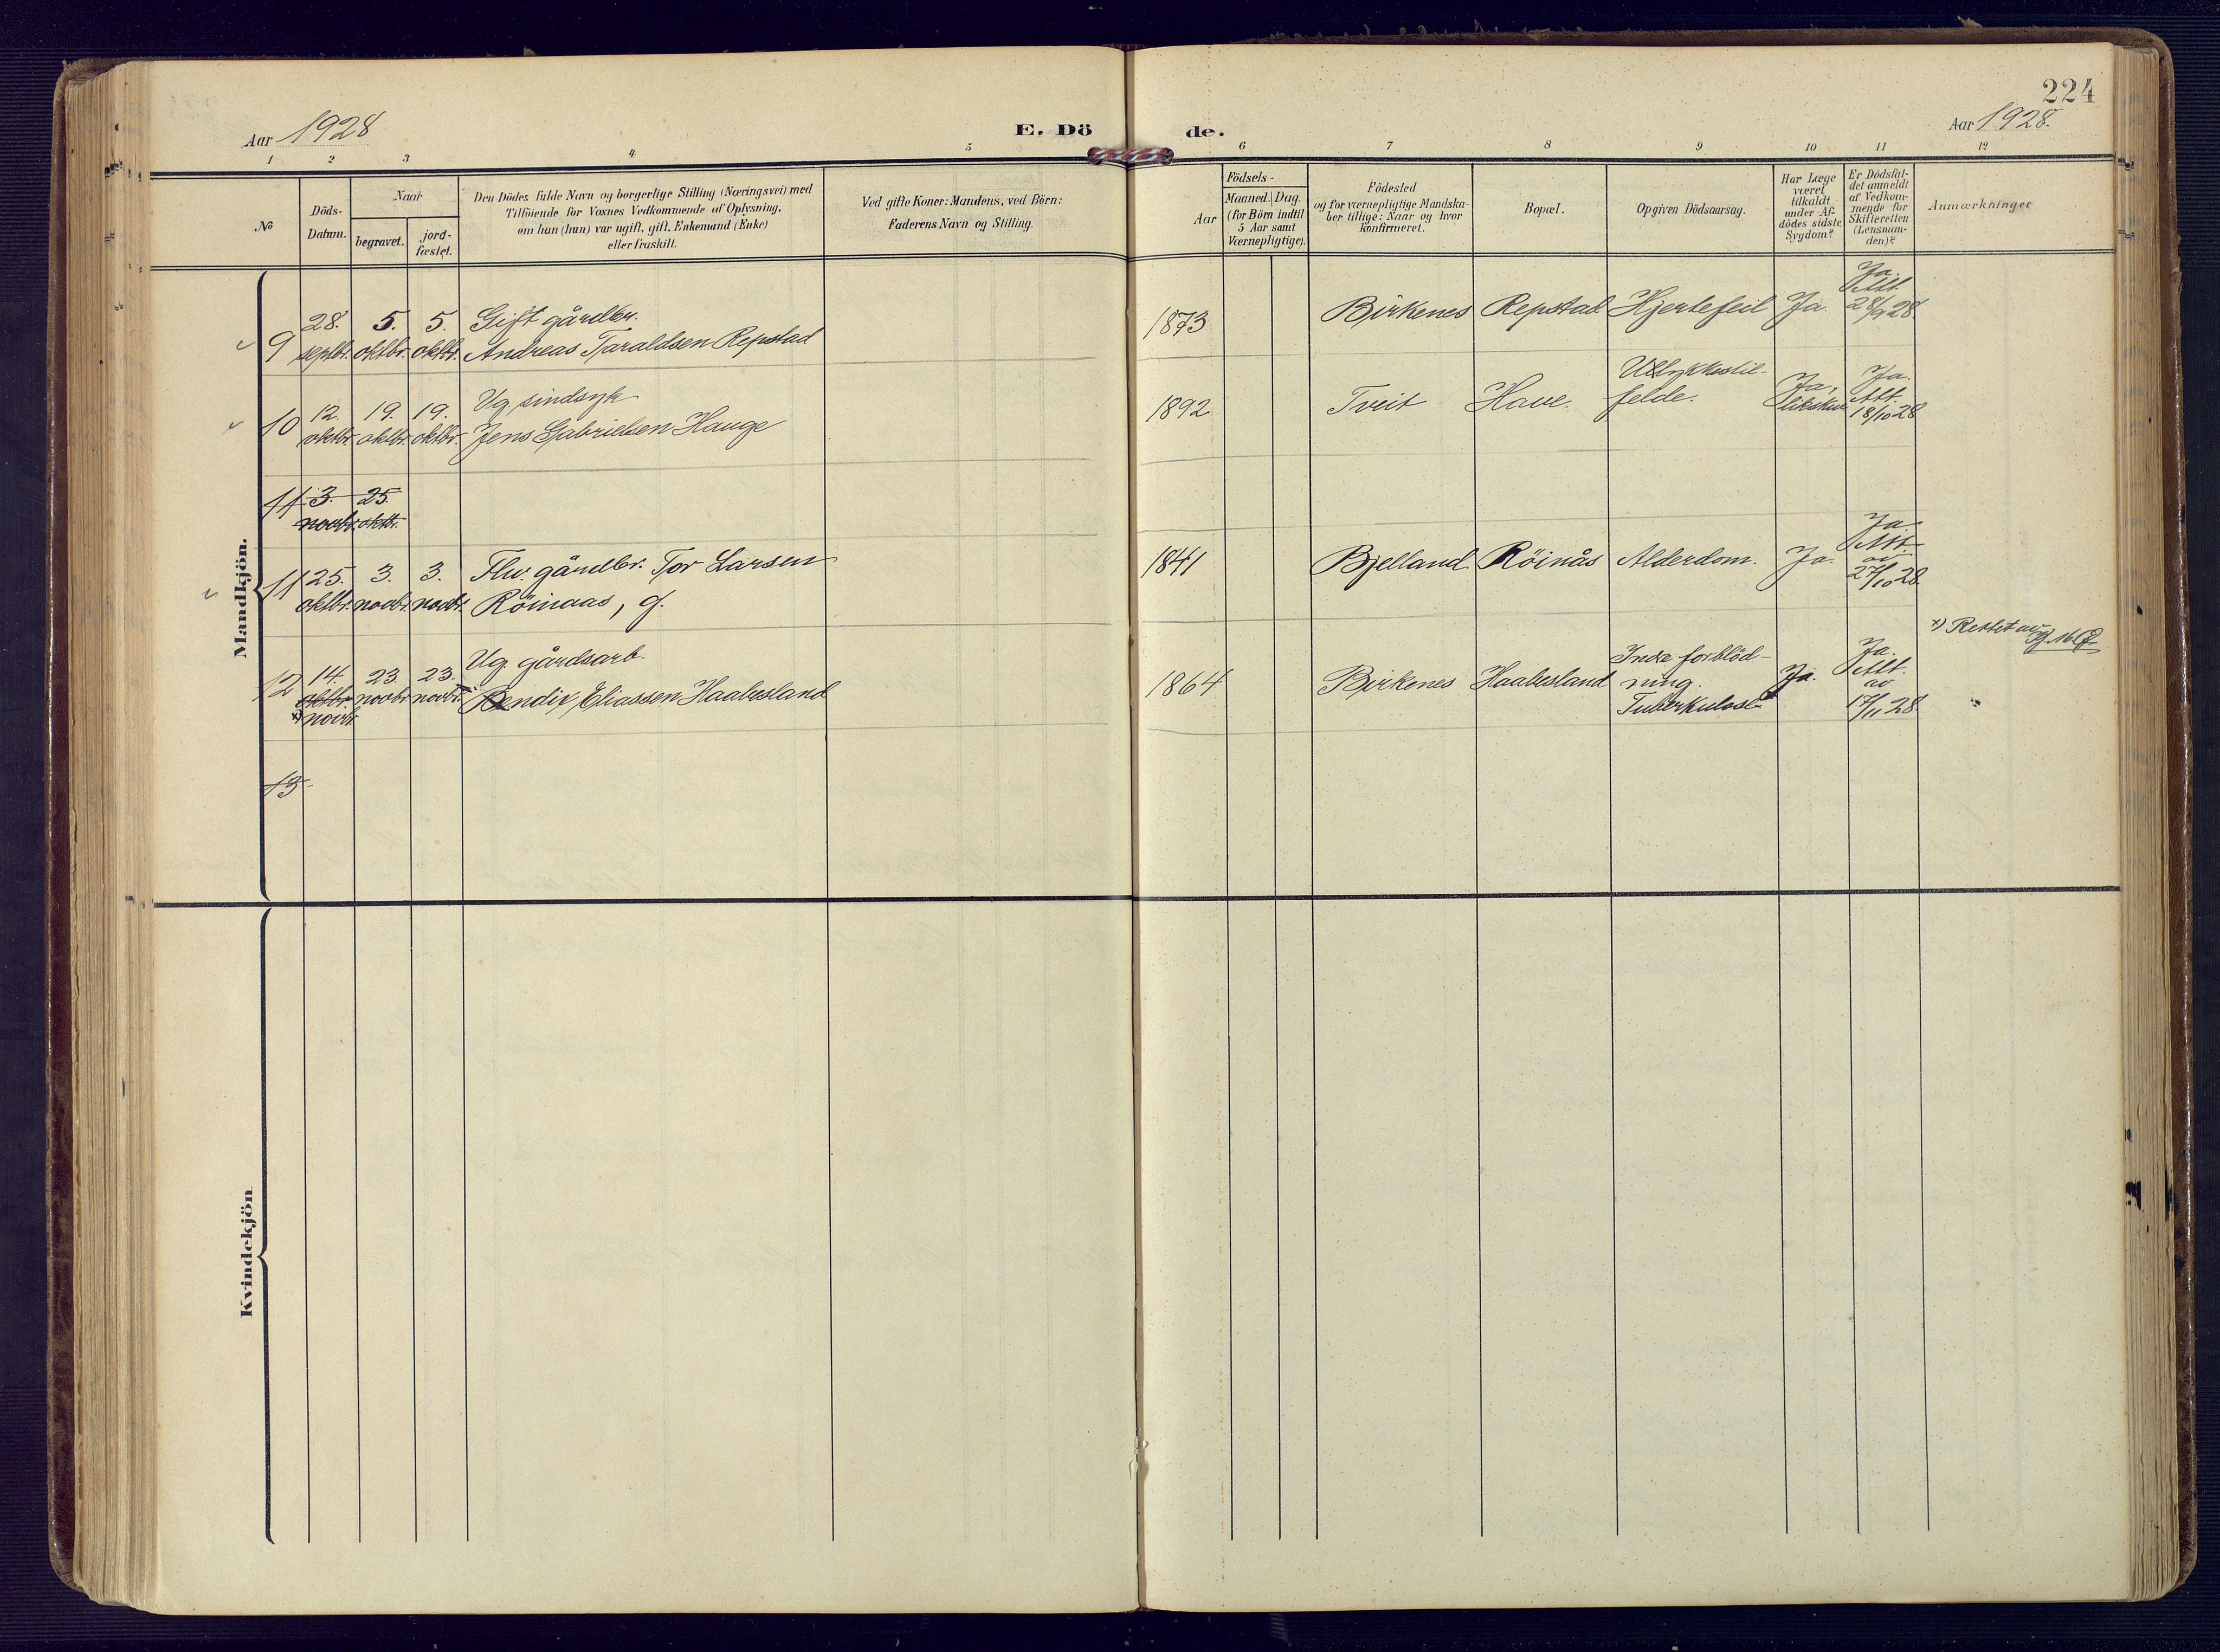 224
Aar 1928
E. Dö de.
Aar 1928.
1 2 3 4 5 6 7 8 9 10 11 12
No
Döds-
Datum.
Naar
begravet.
jord-
fæstet.
Den Dödes fulde Navn og borgerlige Stilling (Næringsvei) med
Tilföiende for Voxnes Vedkommende af Oplysning,
om han (hun) var ugift, gift, Enkemand (Enke)
eller fraskilt.
Ved gifte Koner: Mandens, ved Börn:
Faderens Navn og Stilling.
Födsels-
Aar
Maaned. Dag.
(for Börn indtil
5 Aar samt
Værnepligtige).
Födested
og for værnepligtige Mandska-
ber tillige: Naar og hvor
konfirmeret.
Bopæl.
Opgiven Dödsaarsag.
Har Læge
været
tilkaldt
under Af-
dödes sidste
Sygdom?
Er Dödsfal-
det anmeldt
af Vedkom-
mende for
Skifteretten
(Lensman-
den)?
Anmærkninger
Mandkjön.
9
28.
septbr.
5.
oktbr.
5.
oktbr.
Gift gårdbr.
Andreas Taraldsen Repstad
1873
Birkenes
Repstad
Hjertefeil
Ja.
Ja.
Att.
28/9 28
10
12.
oktbr.
19.
oktbr.
19.
oktbr.
Ug. sindsyk
Jens Gabrielsen Hauge
1892
Tveit
Have.
Ulykkestil-
felde.
Ja,
likskue
Ja.
Att.
18/10 28
11
3.
novbr.
25.
oktbr.
11
25.
oktbr.
3.
novbr.
3.
novbr.
Flv. gårdbr. Tor Larsen
Röinaas, g.
1841
Bjelland
Röinås
Alderdom.
Ja.
Ja.
Att.
av
27/10 28
12
14.
oktbr.
x) novbr.
23.
novbr.
23.
novbr.
Ug. gårdsarb.
Bendix Eliassen Haabesland
1864
Birkenes
Haabesland
Indre forblöd-
ning.
Tuberkulose
Ja.
Ja.
Att.
av
17/11 28
x) Rettet av
13
Kvindekjön